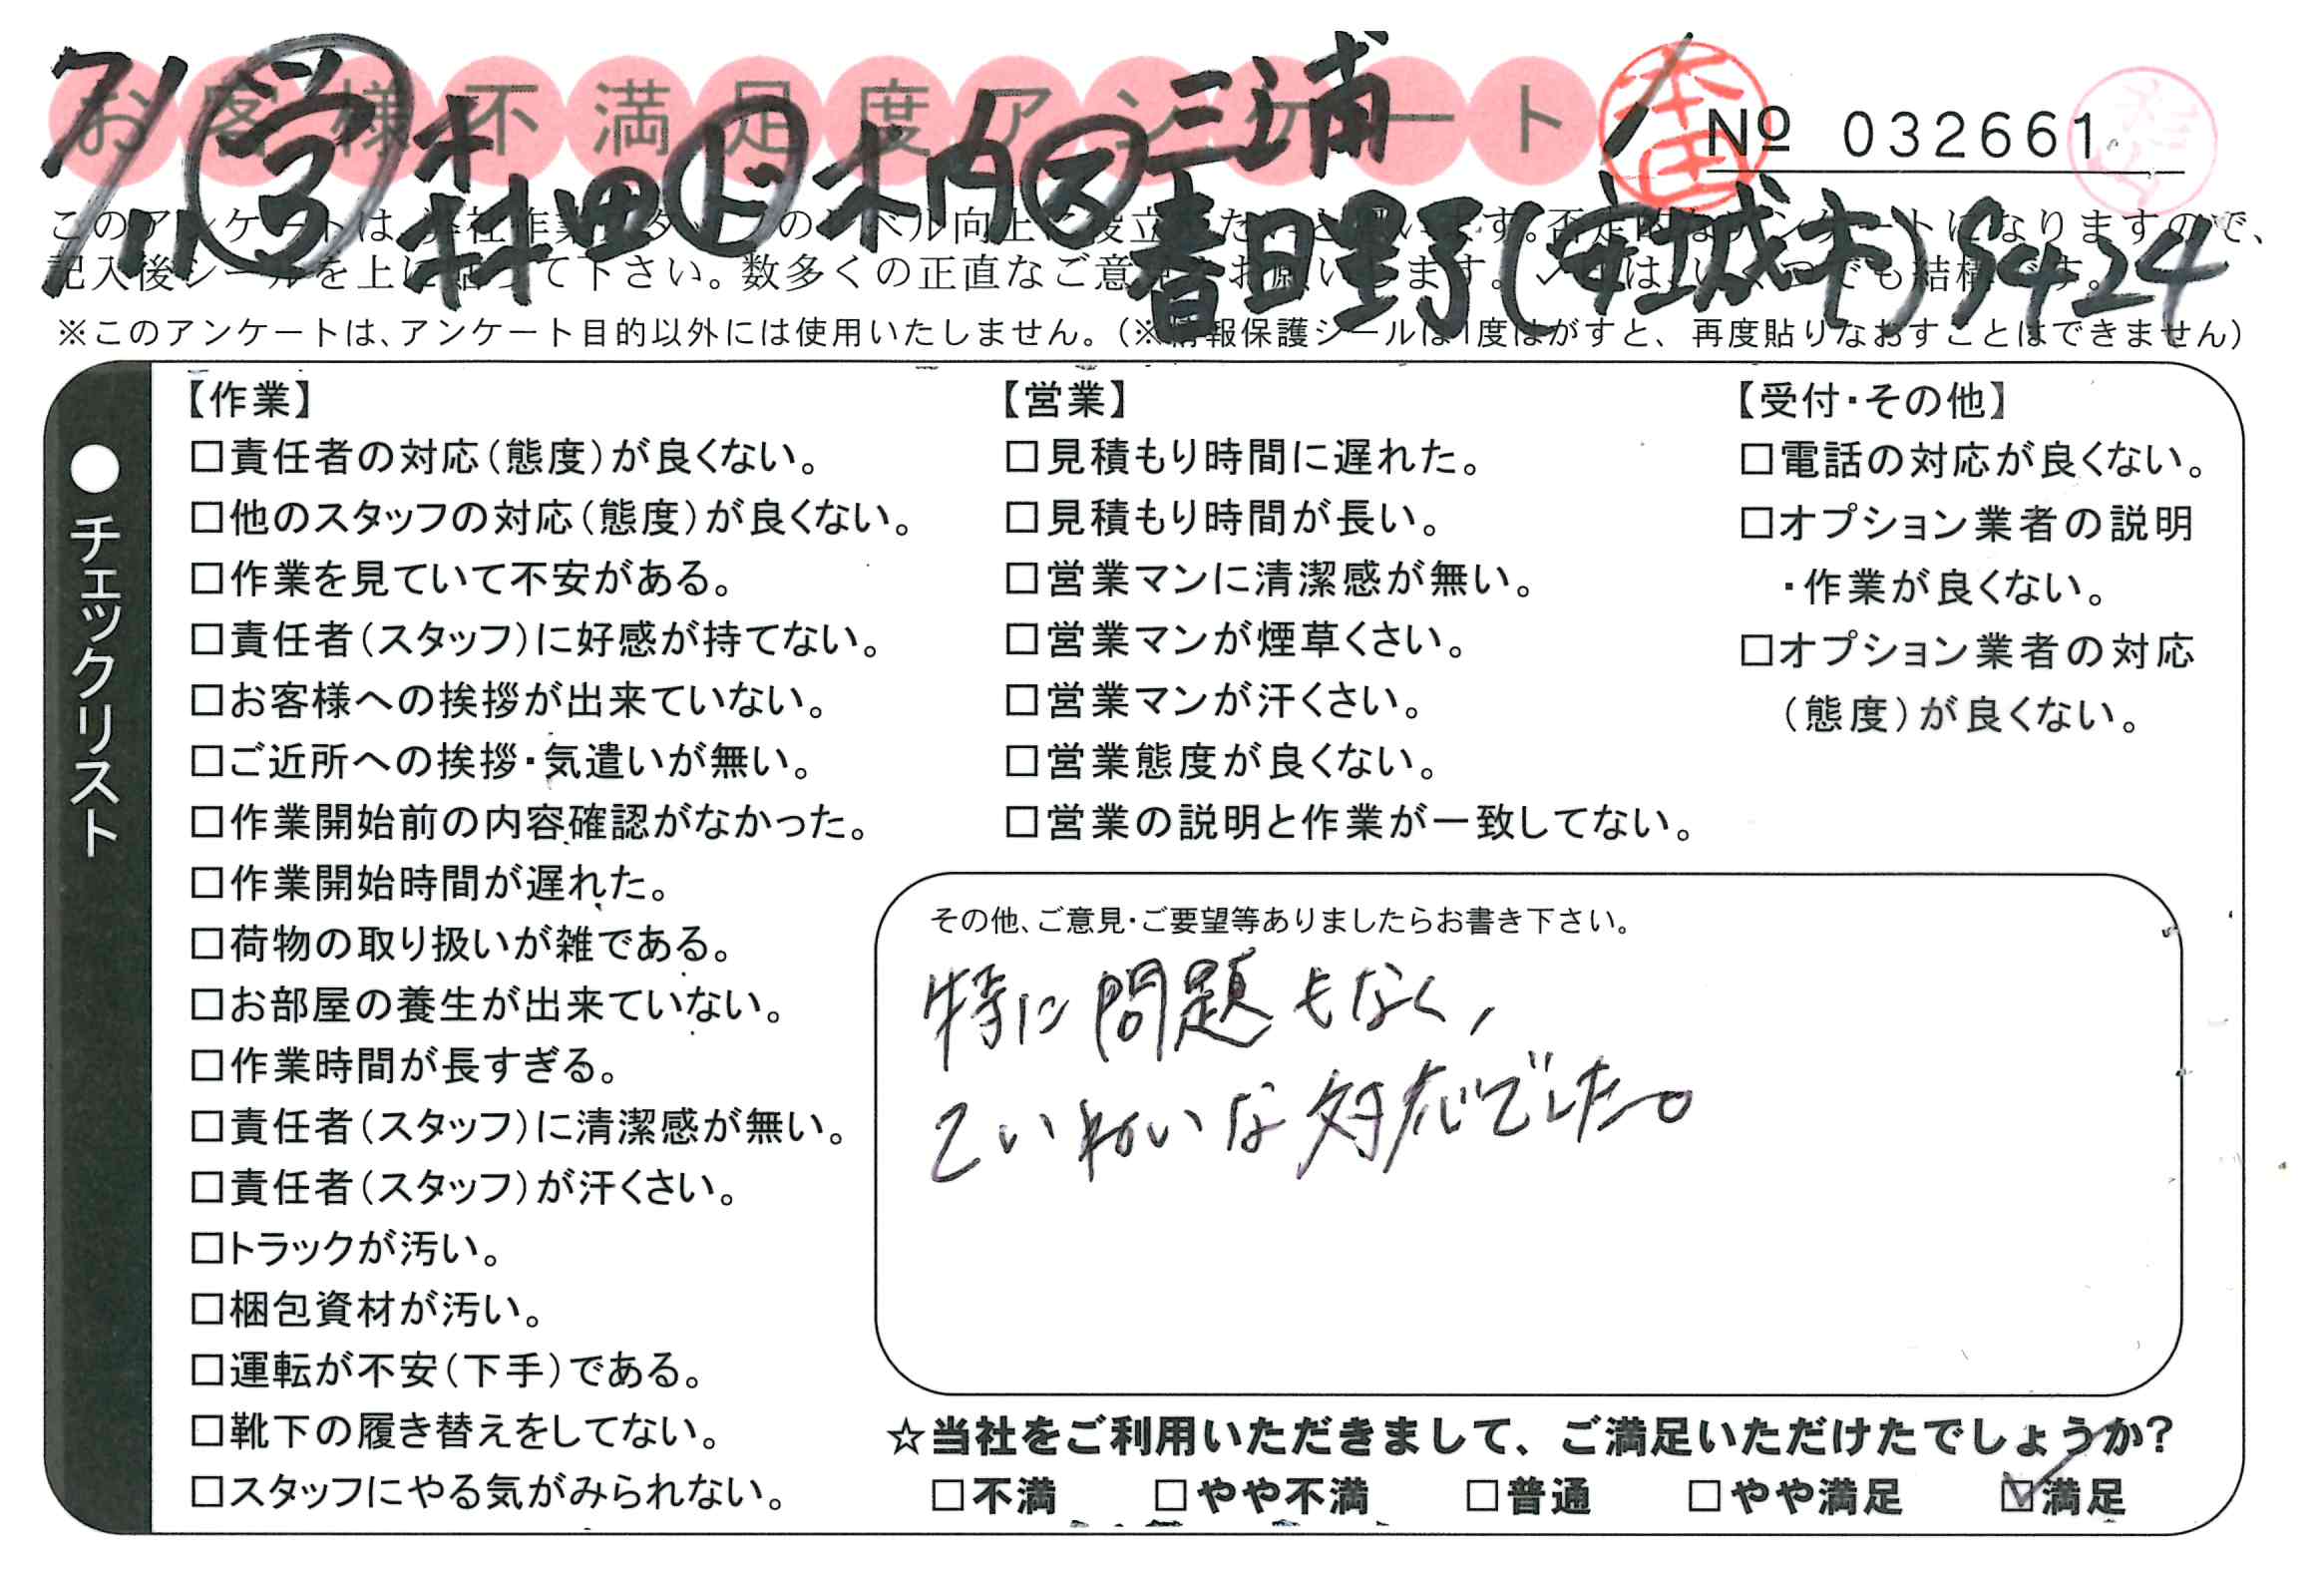 お客様不満足度アンケート
№ 032661
本田
7/11 学 森田 ド 木内 ス 三浦
春日野(安城市)S424
このアンケートは、弊社作業スタッフのレベル向上に役立
記入後シールを上に貼って下さい。数多くの正直なご意見をお願いします。✓はいくつでも結構です。
※このアンケートは、アンケート目的以外には使用いたしません。(※情報保護シールは1度はがすと、再度貼りなおすことはできません)
●チェックリスト
【作業】
□責任者の対応(態度)が良くない。
□他のスタッフの対応(態度)が良くない。
□作業を見ていて不安がある。
□責任者(スタッフ)に好感が持てない。
□お客様への挨拶が出来ていない。
□ご近所への挨拶・気遣いが無い。
□作業開始前の内容確認がなかった。
□作業開始時間が遅れた。
□荷物の取り扱いが雑である。
□お部屋の養生が出来ていない。
□作業時間が長すぎる。
□責任者(スタッフ)に清潔感が無い。
□責任者(スタッフ)が汗くさい。
□トラックが汚い。
□梱包資材が汚い。
□運転が不安(下手)である。
□靴下の履き替えをしてない。
□スタッフにやる気がみられない。
【営業】
□見積もり時間に遅れた。
□見積もり時間が長い。
□営業マンに清潔感が無い。
□営業マンが煙草くさい。
□営業マンが汗くさい。
□営業態度が良くない。
□営業の説明と作業が一致してない。
【受付・その他】
□電話の対応が良くない。
□オプション業者の説明
・作業が良くない。
□オプション業者の対応
(態度)が良くない。
その他、ご意見・ご要望等ありましたらお書き下さい。
特に問題もなく、
ていねいな対応でした。
☆当社をご利用いただきまして、ご満足いただけたでしょうか?
□不満 □やや不満 □普通 □やや満足 ☑満足